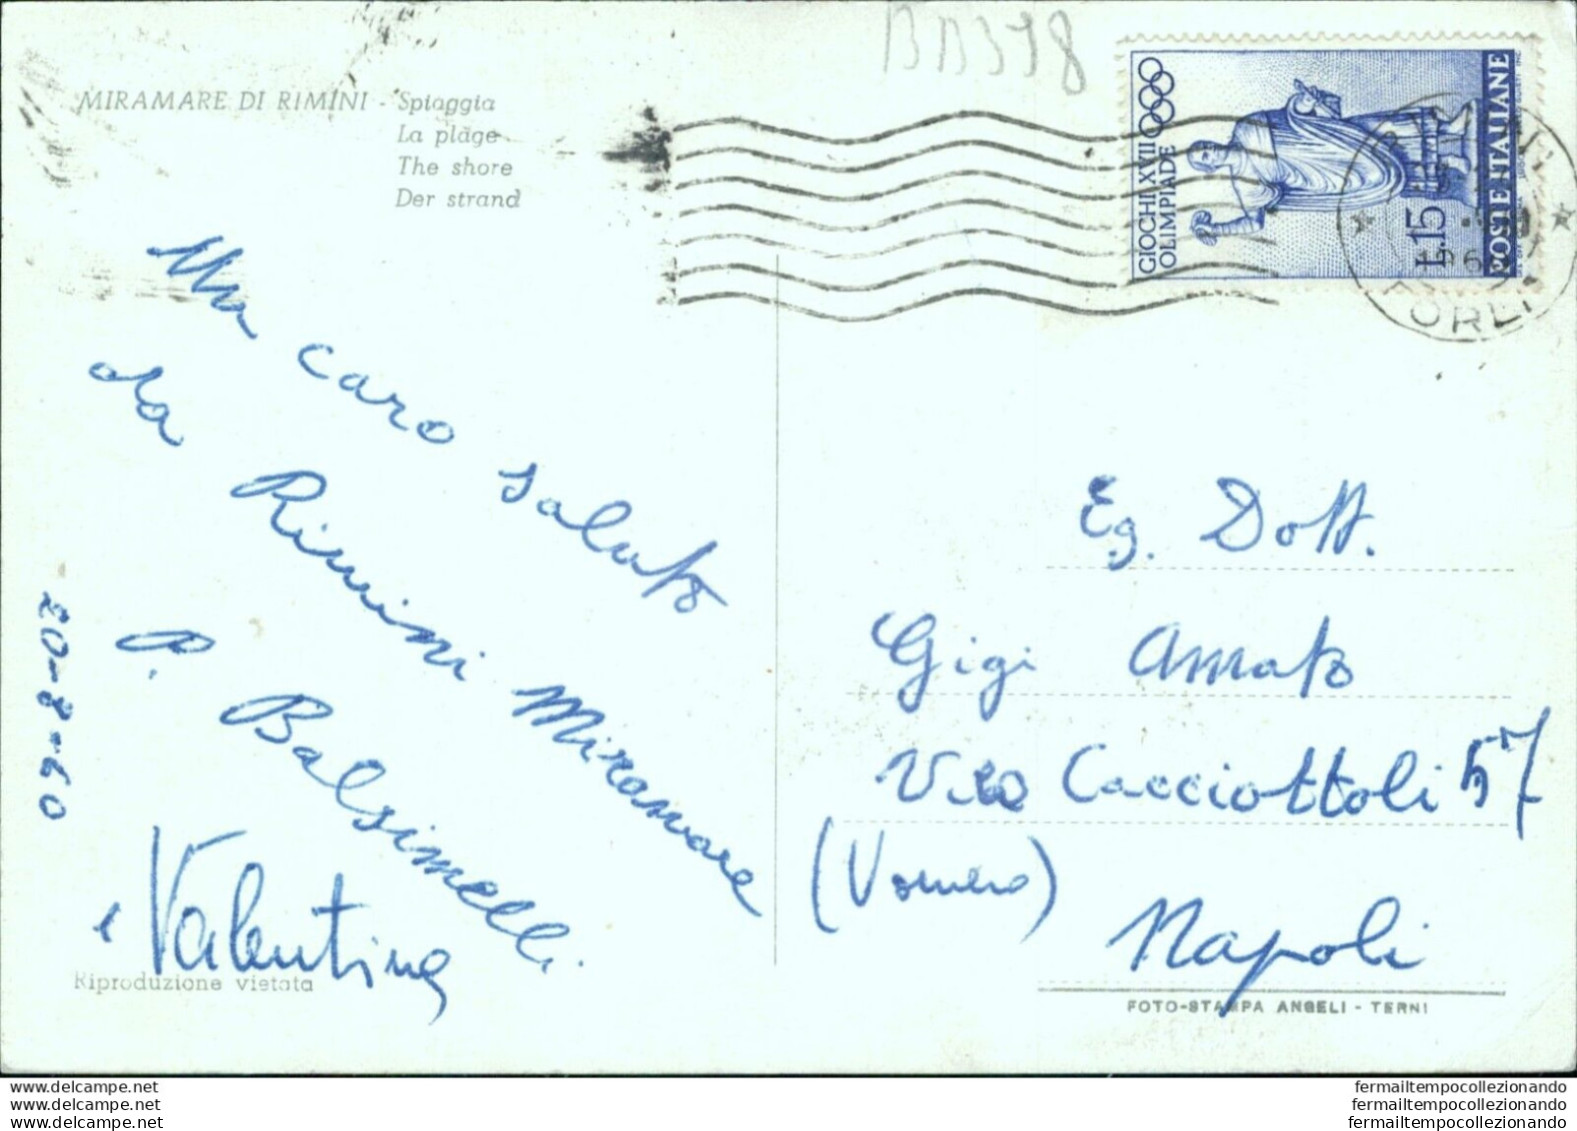 BB398
MIRAMARE DI RIMINI - Spiaggia
La plage
The shore
Der strand
GIOCHI XVII
OLIMPIADE
L.15
POSTE ITALIANE
FORLI
Un caro saluto
da Rimini Miramare
P. Balsimelli
e Valentina
20-8-60
Riproduzione vietata
Eg. Dott.
Gigi Amato
Via Cacciottoli 57
(Vomero)
Napoli
FOTO-STAMPA ANGELI - TERNI
aes-delcampe.net
aes-delcampe.net
aes-delcampe.net
fermailtempocollezionando
fermailtempocollezionando
fermailtempocollezionando